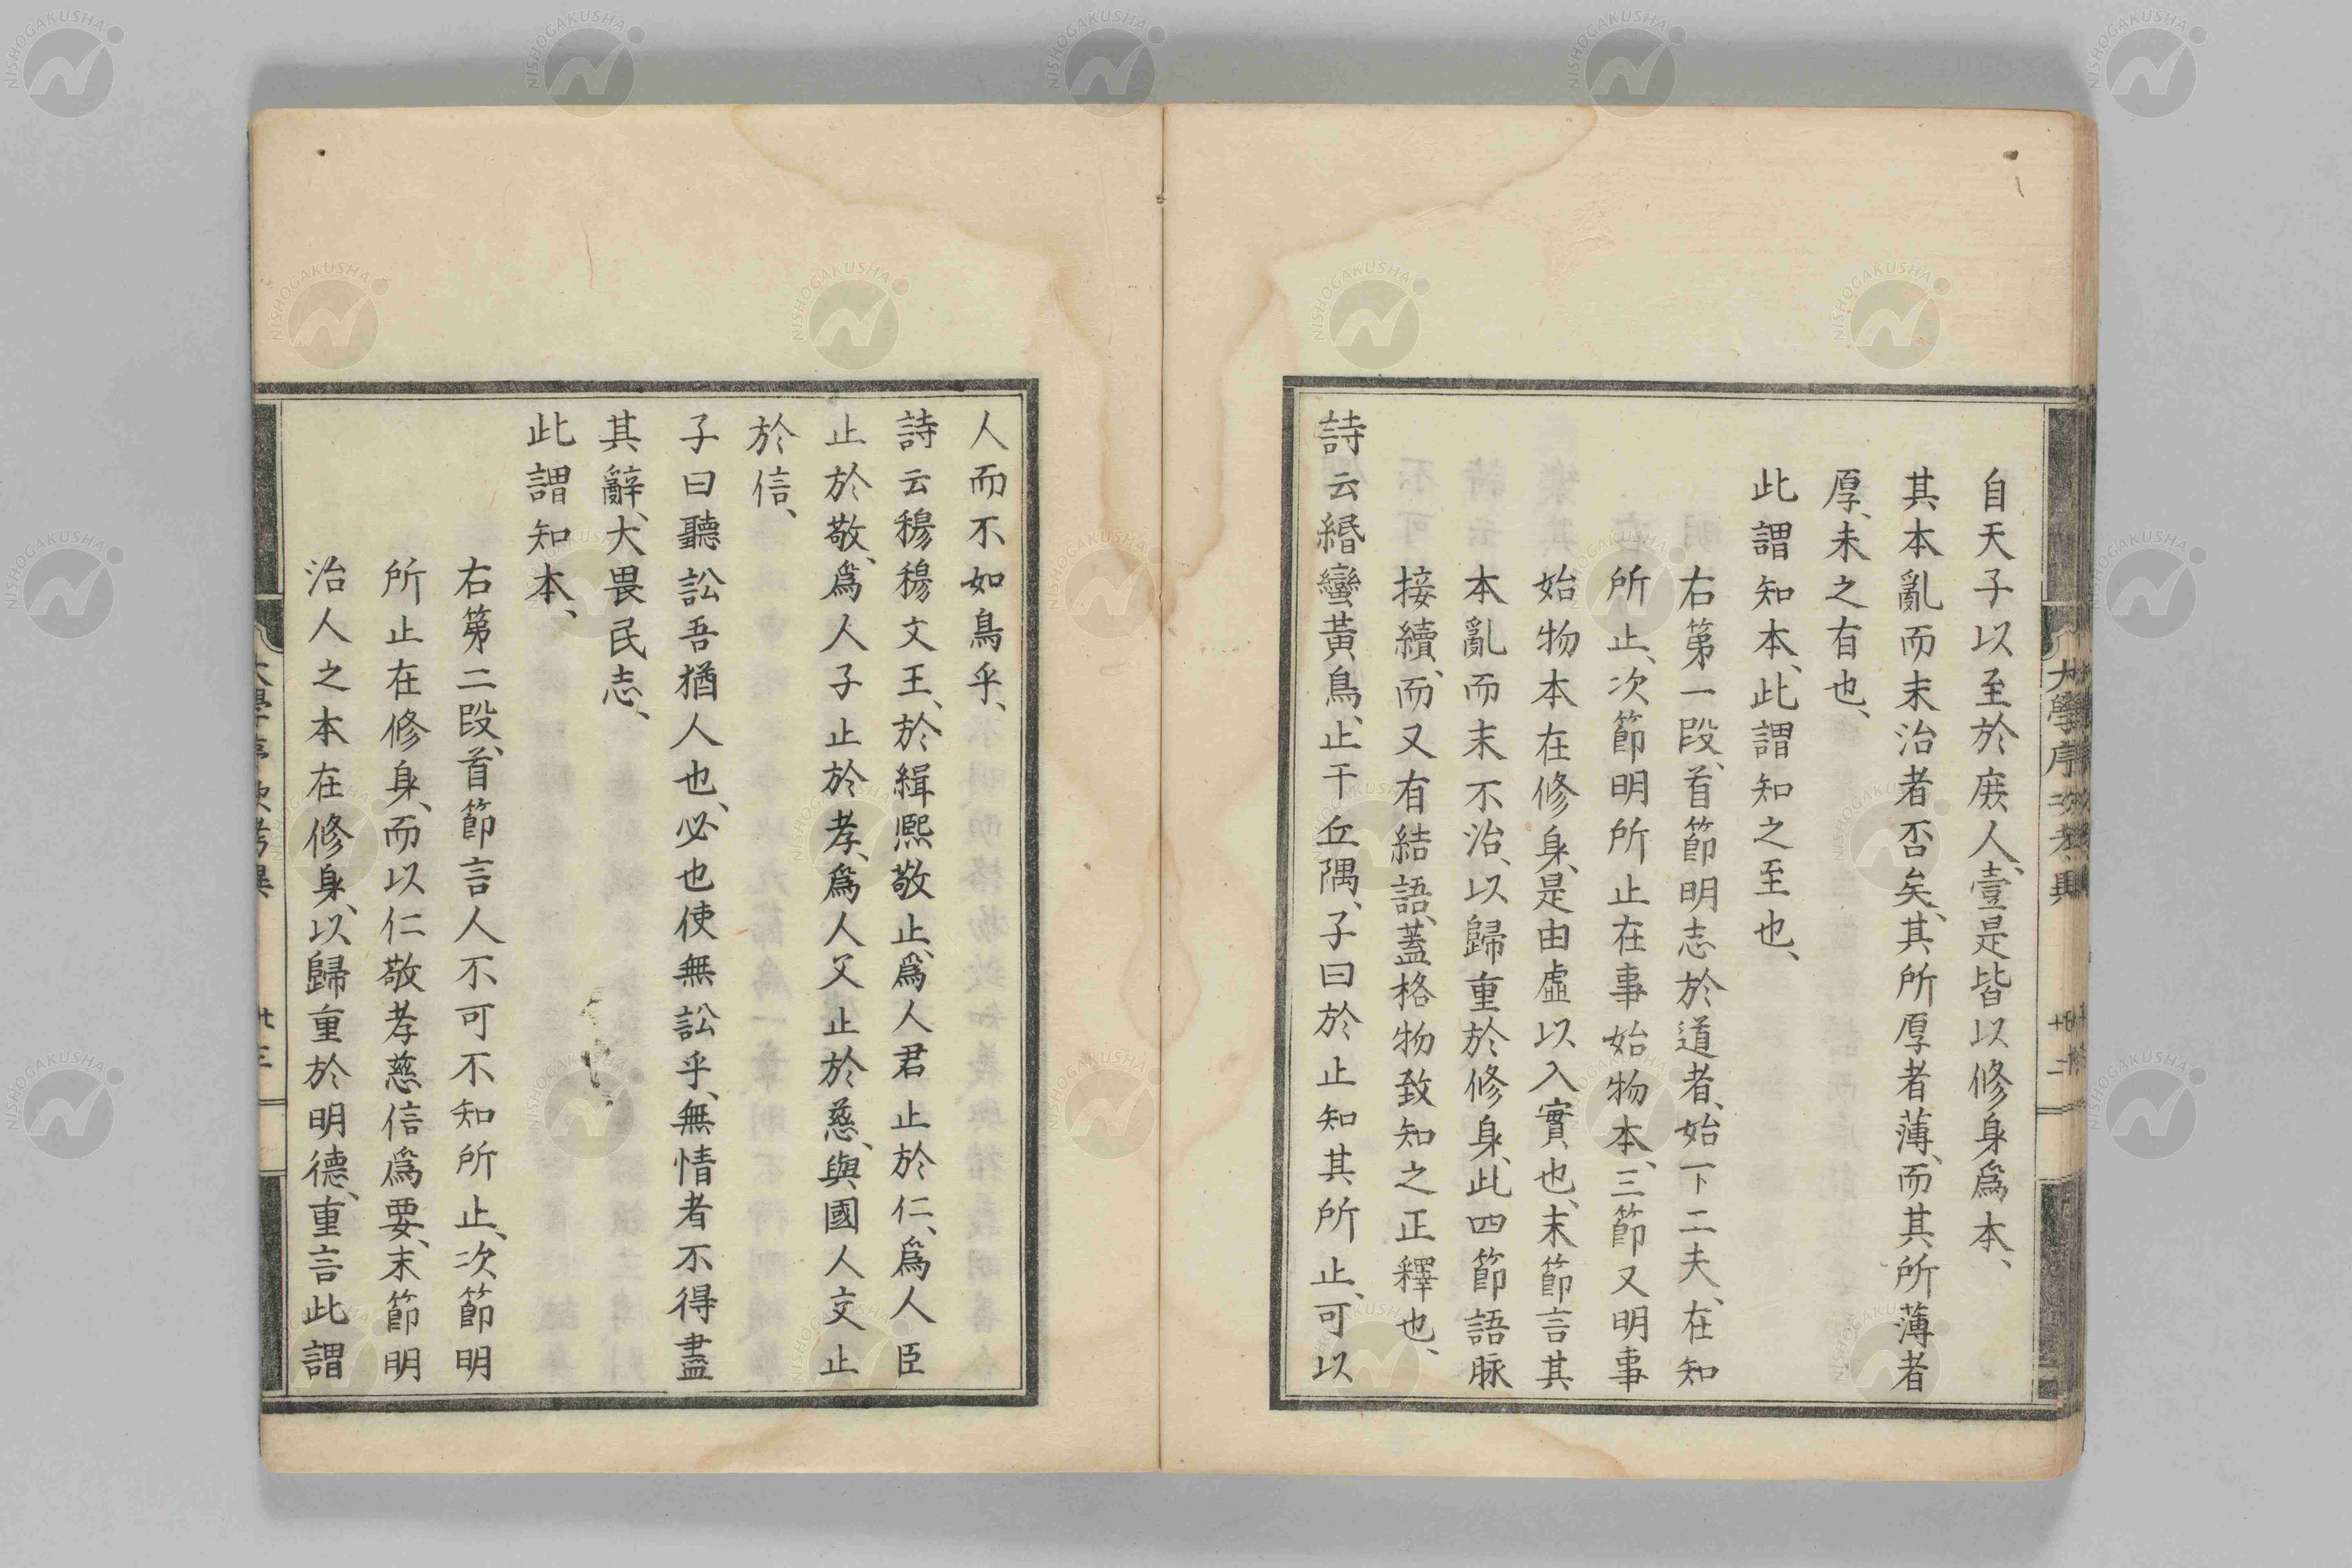 自天子以至於庶人、壹是皆以修身爲本、
其本亂而末治者否矣、其所厚者薄、而其所薄者
厚、未之有也、
此謂知本、此謂知之至也、
右第一段、首節明志於道者、始下二夫、在知
所止、次節明所止在事始物本、三節又明事
始物本在修身、是由虛以入實也、末節言其
本亂而末不治、以歸重於修身、此四節語脉
接續、而又有結語、蓋格物致知之正釋也、
詩云緡蠻黃鳥、止于丘隅、子曰於止知其所止、可以
大學序次考異
十二
人而不如鳥乎、
詩云穆穆文王、於緝熙敬止、爲人君止於仁、爲人臣
止於敬、爲人子止於孝、爲人父止於慈、與國人交止
於信、
子曰聽訟吾猶人也、必也使無訟乎、無情者不得盡
其辭、大畏民志、
此謂知本、
右第二段、首節言人不可不知所止、次節明
所止在修身、而以仁敬孝慈信爲要、末節明
治人之本在修身、以歸重於明德、重言此謂
NISHOGAKUSHA